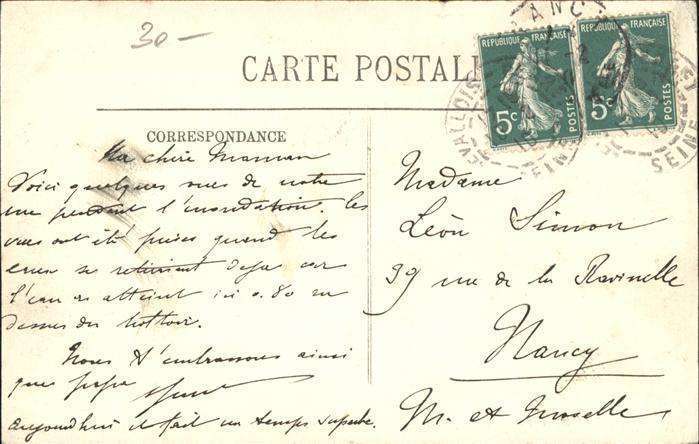 30 –
CARTE POSTALE
RÉPUBLIQUE FRANÇAISE
5c POSTES
RÉPUBLIQUE FRANÇAISE
5c POSTES
LEVALLOIS
SEINE
CORRESPONDANCE
Ma chère Maman
Voici quelques vues de notre
rue pendant l'inondation. les
vues ont été prises quand les
eaux se retiraient déjà car
l'eau a atteint ici 0.80 au
dessus du trottoir.
Nous t'embrassons ainsi
que papa
aujourd'hui il fait un temps superbe.
Madame
Léon Simon
39 rue de la Ravinelle
Nancy
M. et Moselle